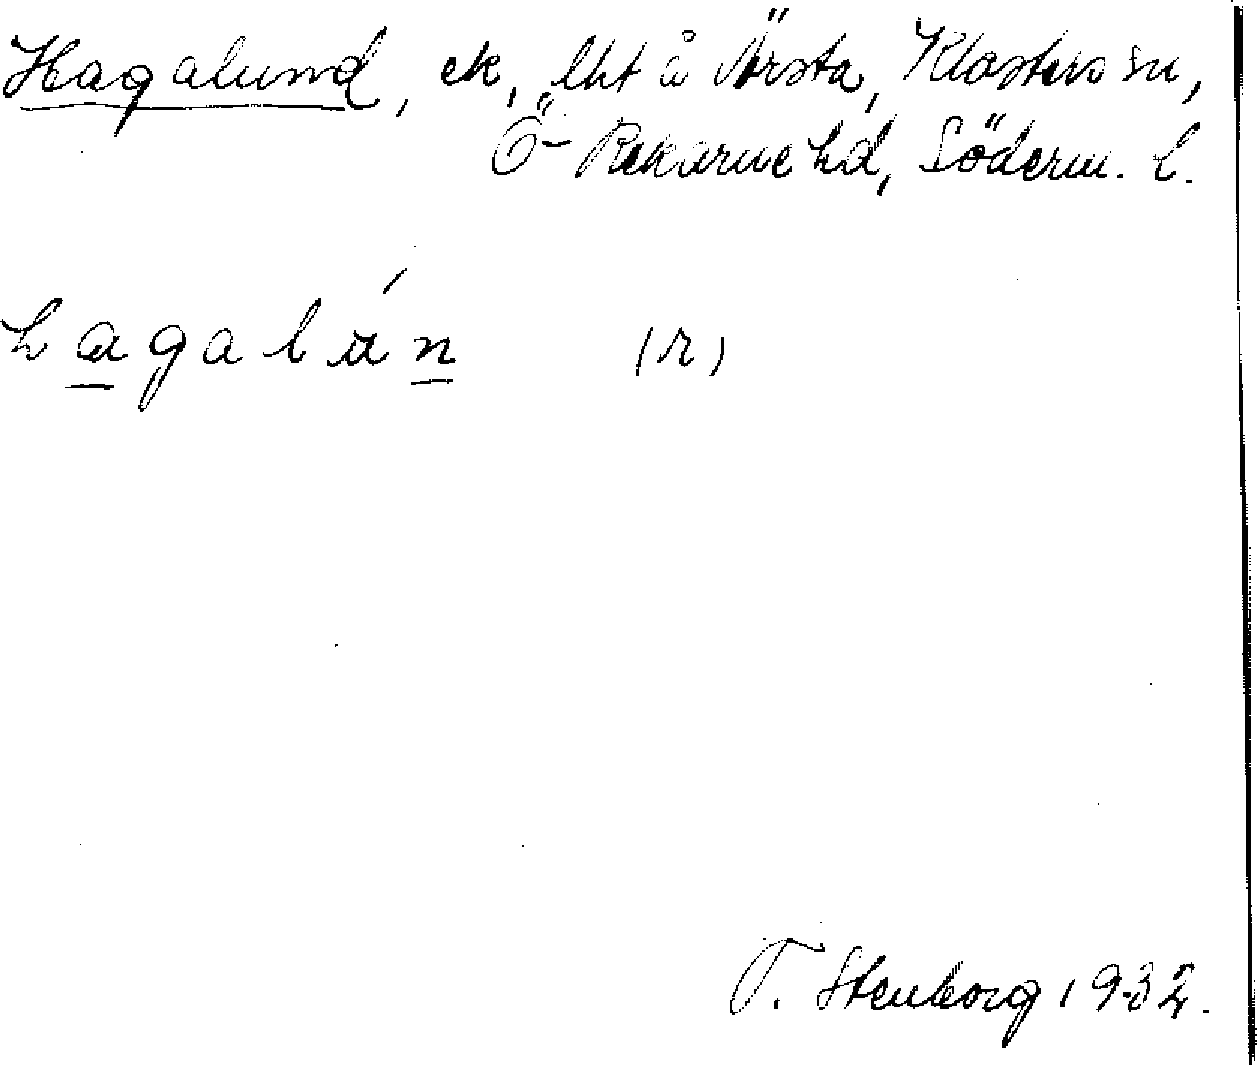 Hagalund, ek, lht å Årsta, Klosters sn,
Ö-Rekarne hd, Söderm. l.
hagalún (r)
T. Stenborg 1932.